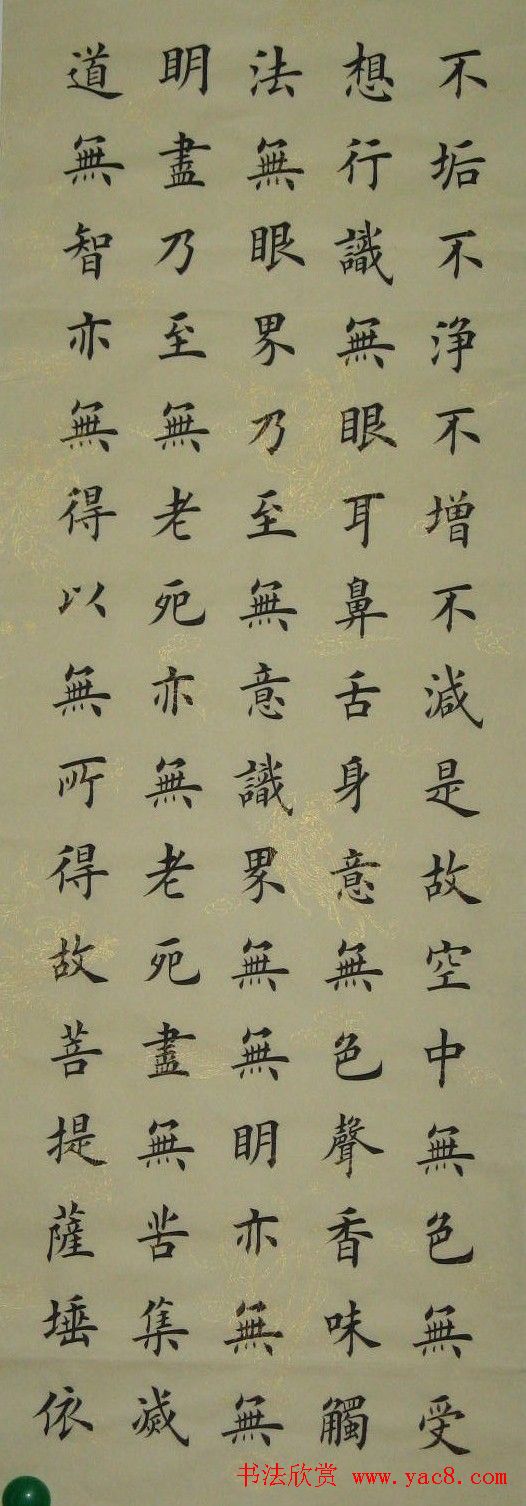 不垢不浄不增不減是故空中無色無受
想行識無眼耳鼻舌身意無色聲香味觸
法無眼界乃至無意識界無無明亦無無
明盡乃至無老死亦無老死盡無苦集滅
道無智亦無得以無所得故菩提薩埵依
书法欣赏 www.yac8.com